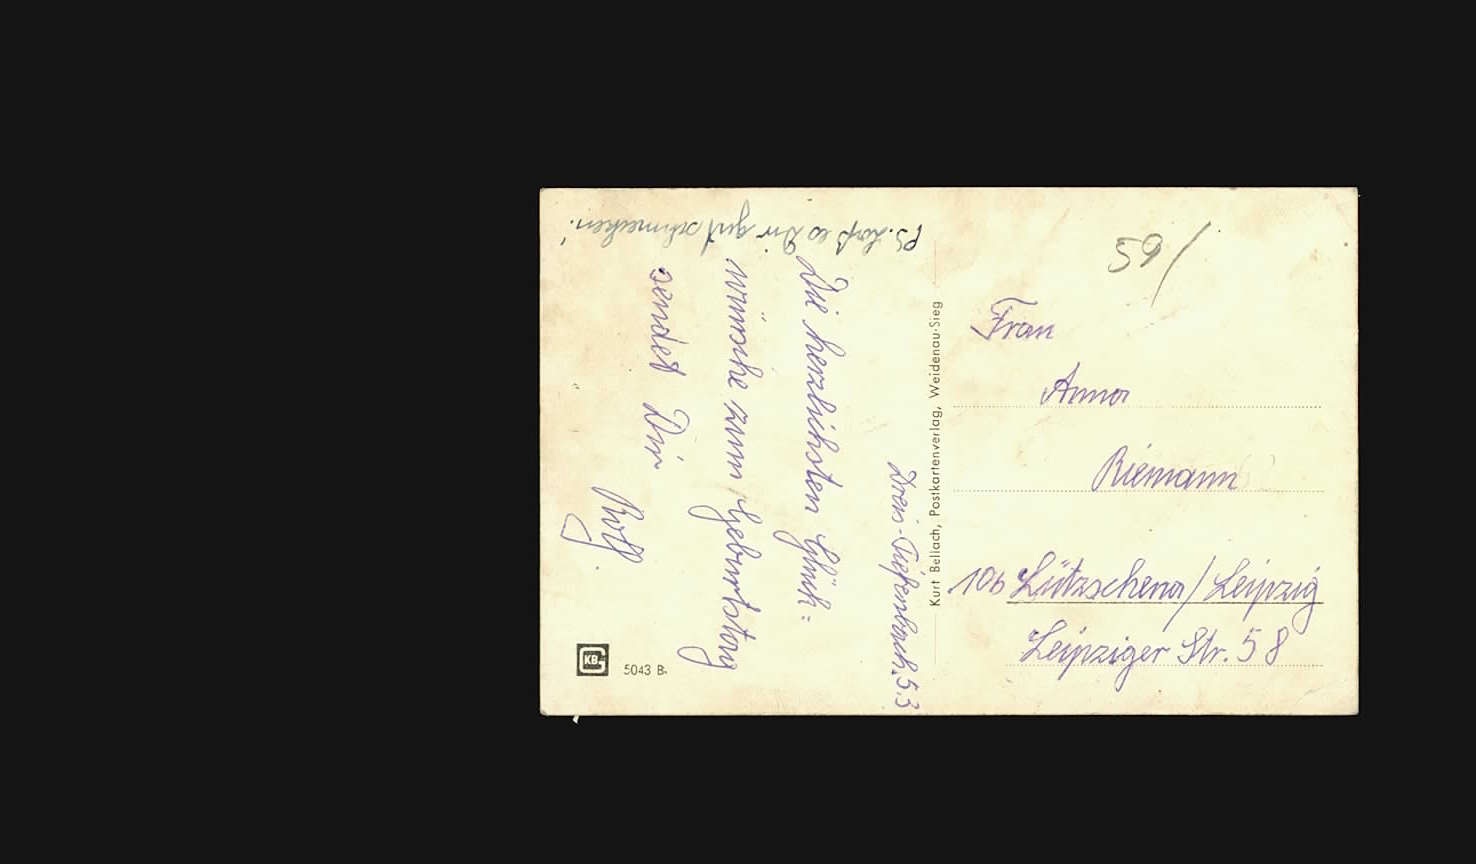 Dreis-Tiefenbach, 5.3
Die herzlichsten Glück=
wünsche zum Geburtstag
sendet Dir
Rolf.
PS. Laß es Dir gut schmecken!
KB
5043 B.
Kurt Bellach, Postkartenverlag, Weidenau-Sieg
59/
Frau
Anna
Riemann
10b Lützschena/Leipzig
Leipziger Str. 58